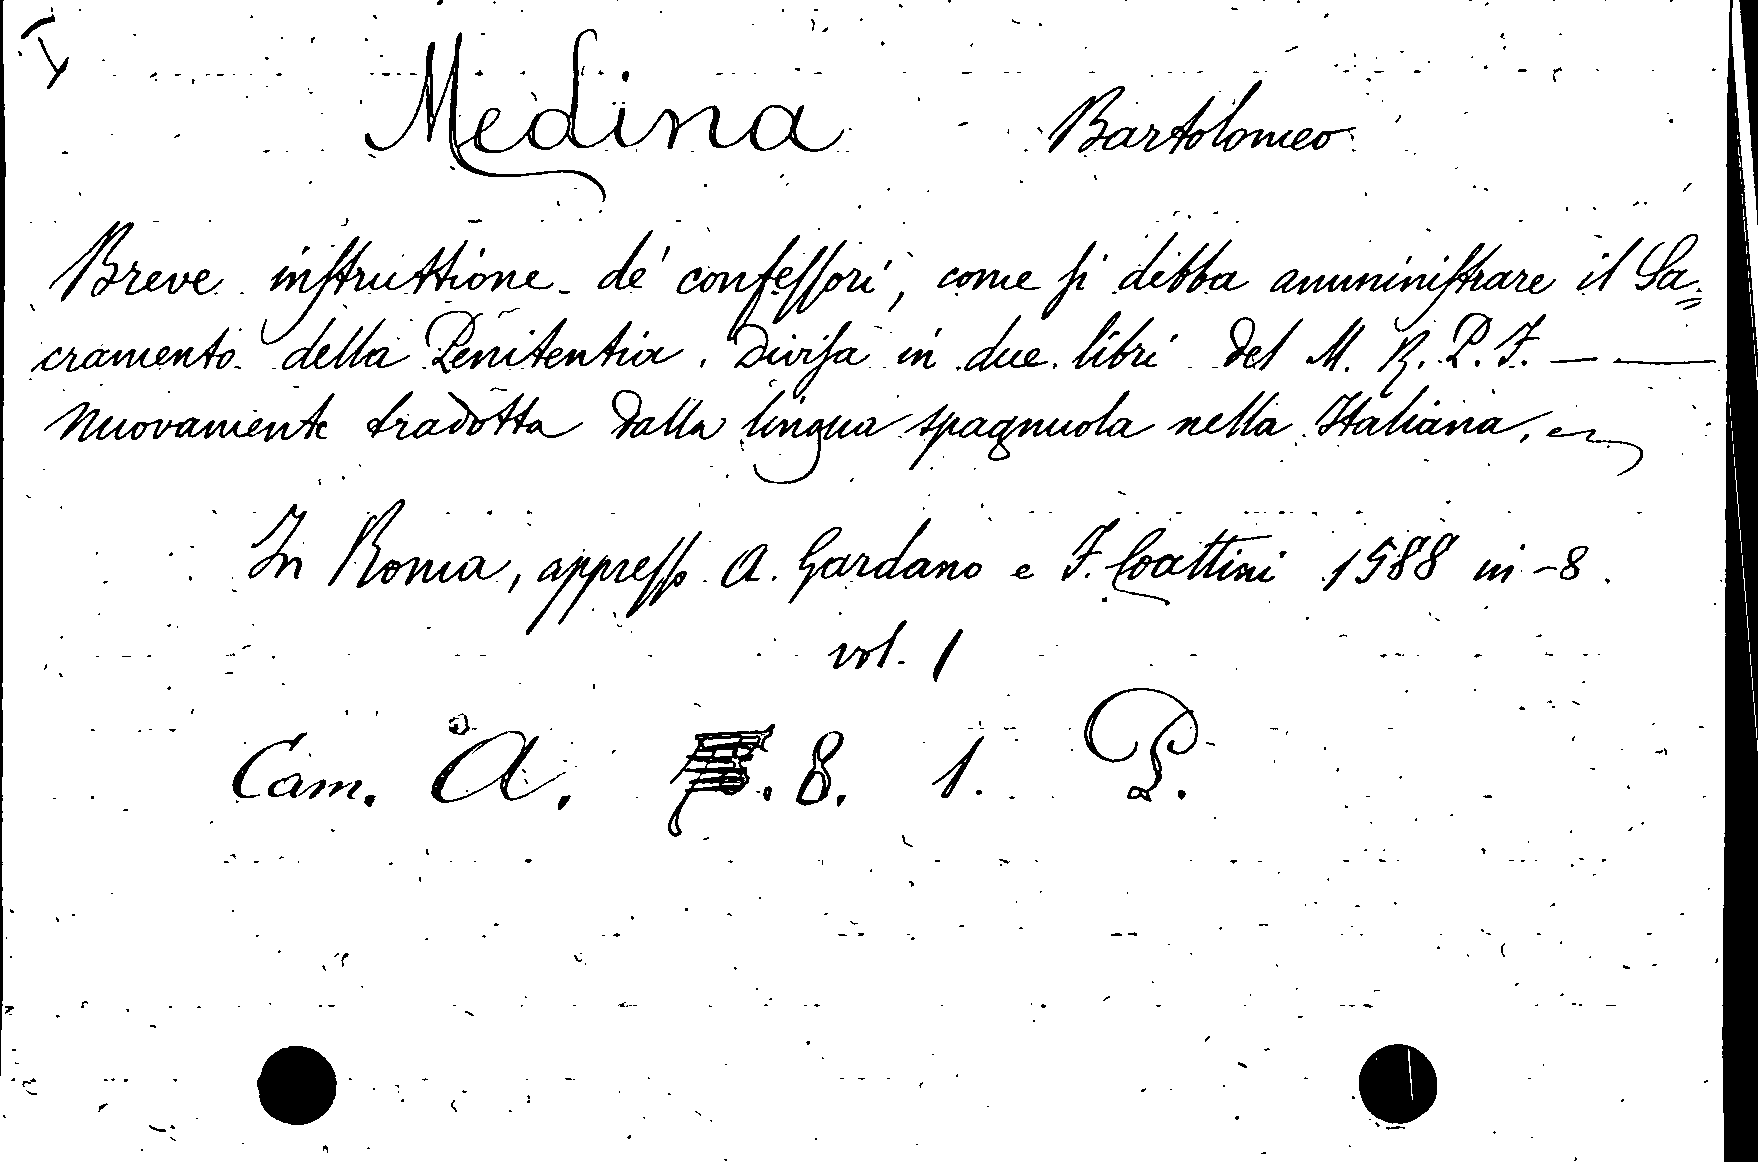 Medina Bartolomeo
Breve inſtruttione de' confeſſori, come ſi debba amminiſtrare il Sa=
cramento della Penitentia. Diviſa in due libri del M. R. P. F. — —
nuovamente tradotta dalla lingua spagnuola nella Italiana.
In Roma, appreſſo A. Gardano e F. Coattini 1588 in-8.
vol. 1
Cam. A. 8. 1. P.